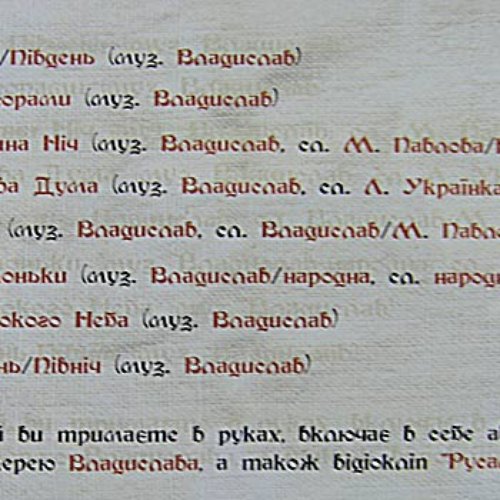 /Південь (муз. Владислав)
(муз. Владислав)
Ніч (муз. Владислав, сл. М. Павлова/
Дума (муз. Владислав, сл. Л. Українка
(муз. Владислав, сл. Владислав/М.
(муз. Владислав/народна, сл.
Неба (муз. Владислав)
/Північ (муз. Владислав)
ви тримаєте в руках, включає в себе
Владислава, а також відіокліп